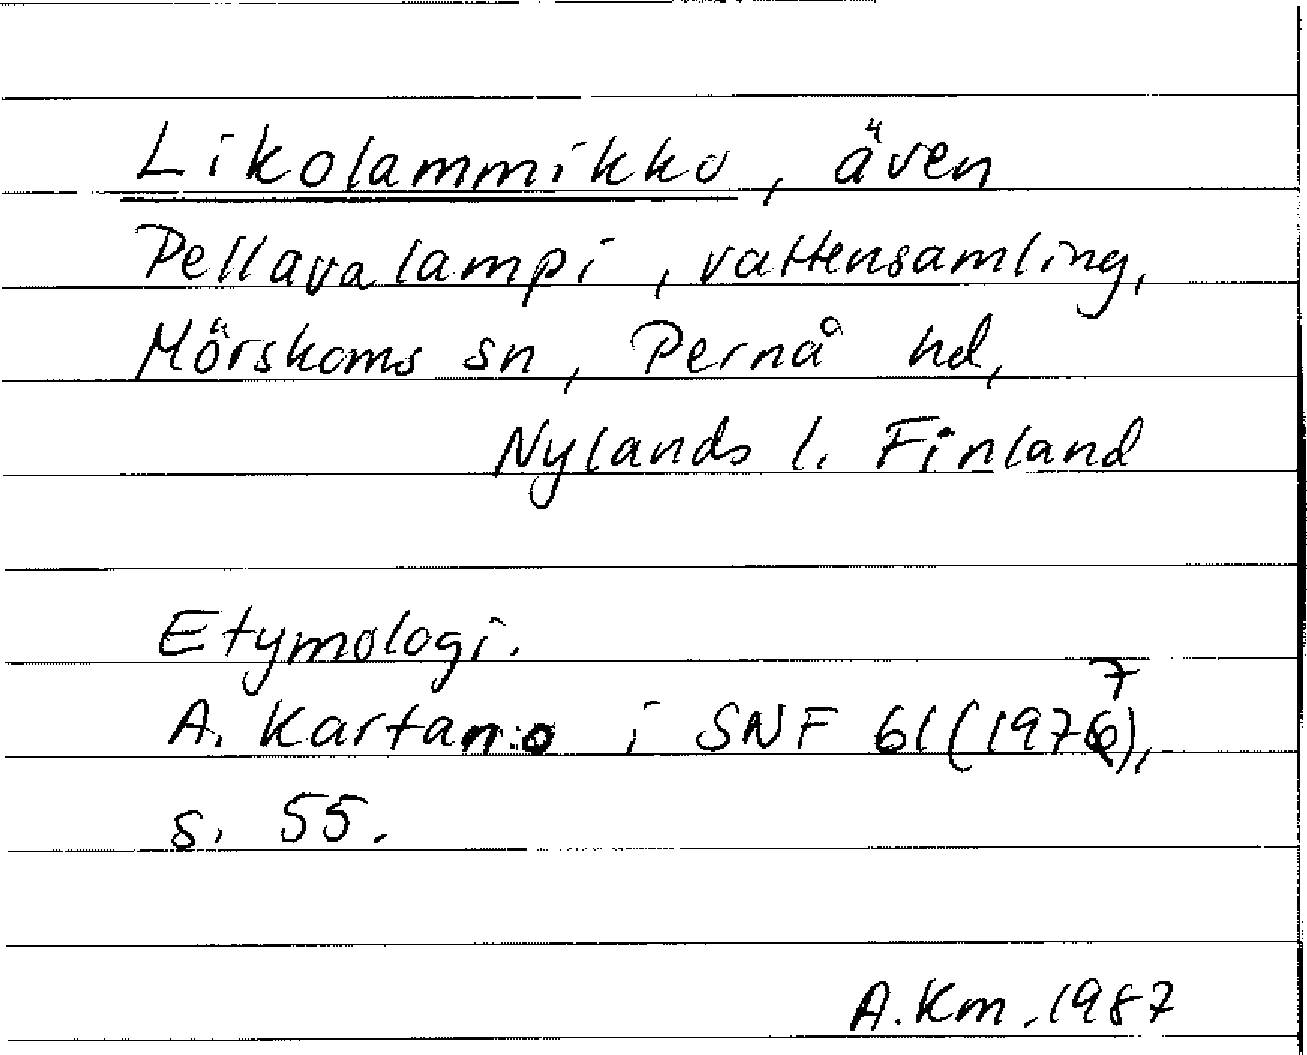 Likolammikko, även
Pellavalampi, vattensamling,
Mörskoms sn, Pernå hd,
Nylands l. Finland
Etymologi.
A. Kartano i SNF 61 (1977),
s. 55.
A.Km. 1987